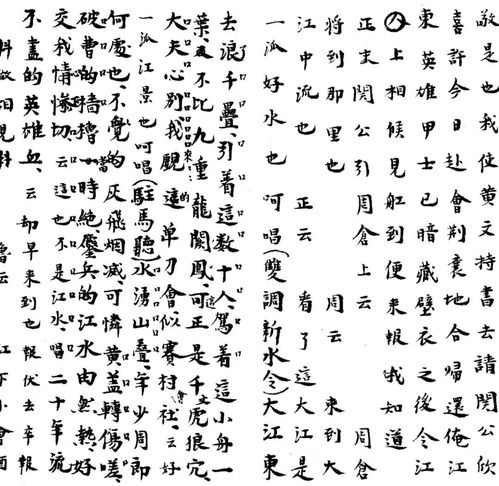 敬是也我使黃文持書去請関公欣
喜許今日赴會荆襄地合帰還俺江
東英雄甲士已暗藏壁衣之後令江
上相候見舡到便来報哦知道
正末関公引周倉上云 周倉
将到那里也 周云 来到大
江中流也 正云 看了這大江是
一派好水也呵唱(雙調新水令)大江東
去浪千疊引着這数十人駕着這小舟一
葉又不比九重龍闕鳳可正是千丈虎狼穴
大夫心別我覷這單刀會似賽村社云好
一派江景也呵唱(駐馬聽)水湧山疊年少周郎
何處也不覺的灰飛烟滅可憐黃蓋轉傷嗟
破曹的檣櫓一時絕鏖兵的江水由然熱好
交我情慘切云這也不是江水唱二十年流
不盡的英雄血云却早来到也報伏去卒報
科做相見科 魯云 江下小會酒